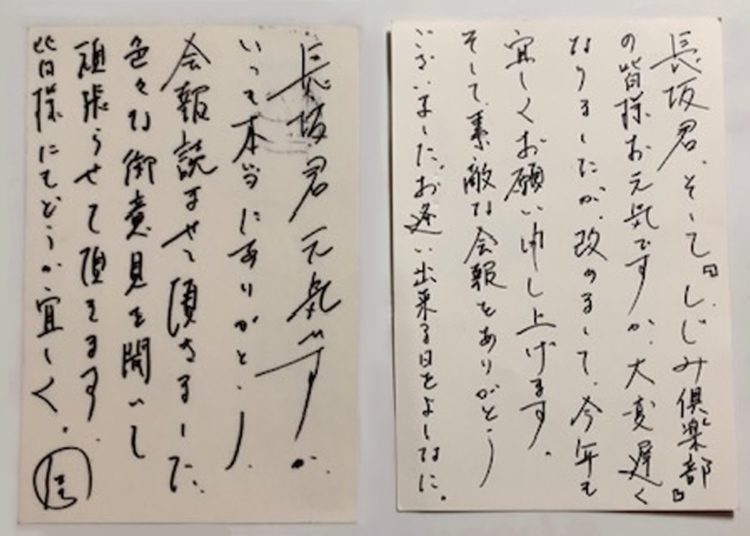 長坂君元気ですか、
いつも本当にありがとう。
会報読ませて頂きました。
色々な御意見を聞いて
頑張らせて頂きます。
皆様にもどうか宜しく。
長坂君、そして『しじみ倶楽部』
の皆様お元気ですか、大変遅く
なりましたが、改めまして、今年も
宜しくお願い申し上げます。
そして素敵な会報をありがとう
ございました。お逢い出来る日をよしなに。